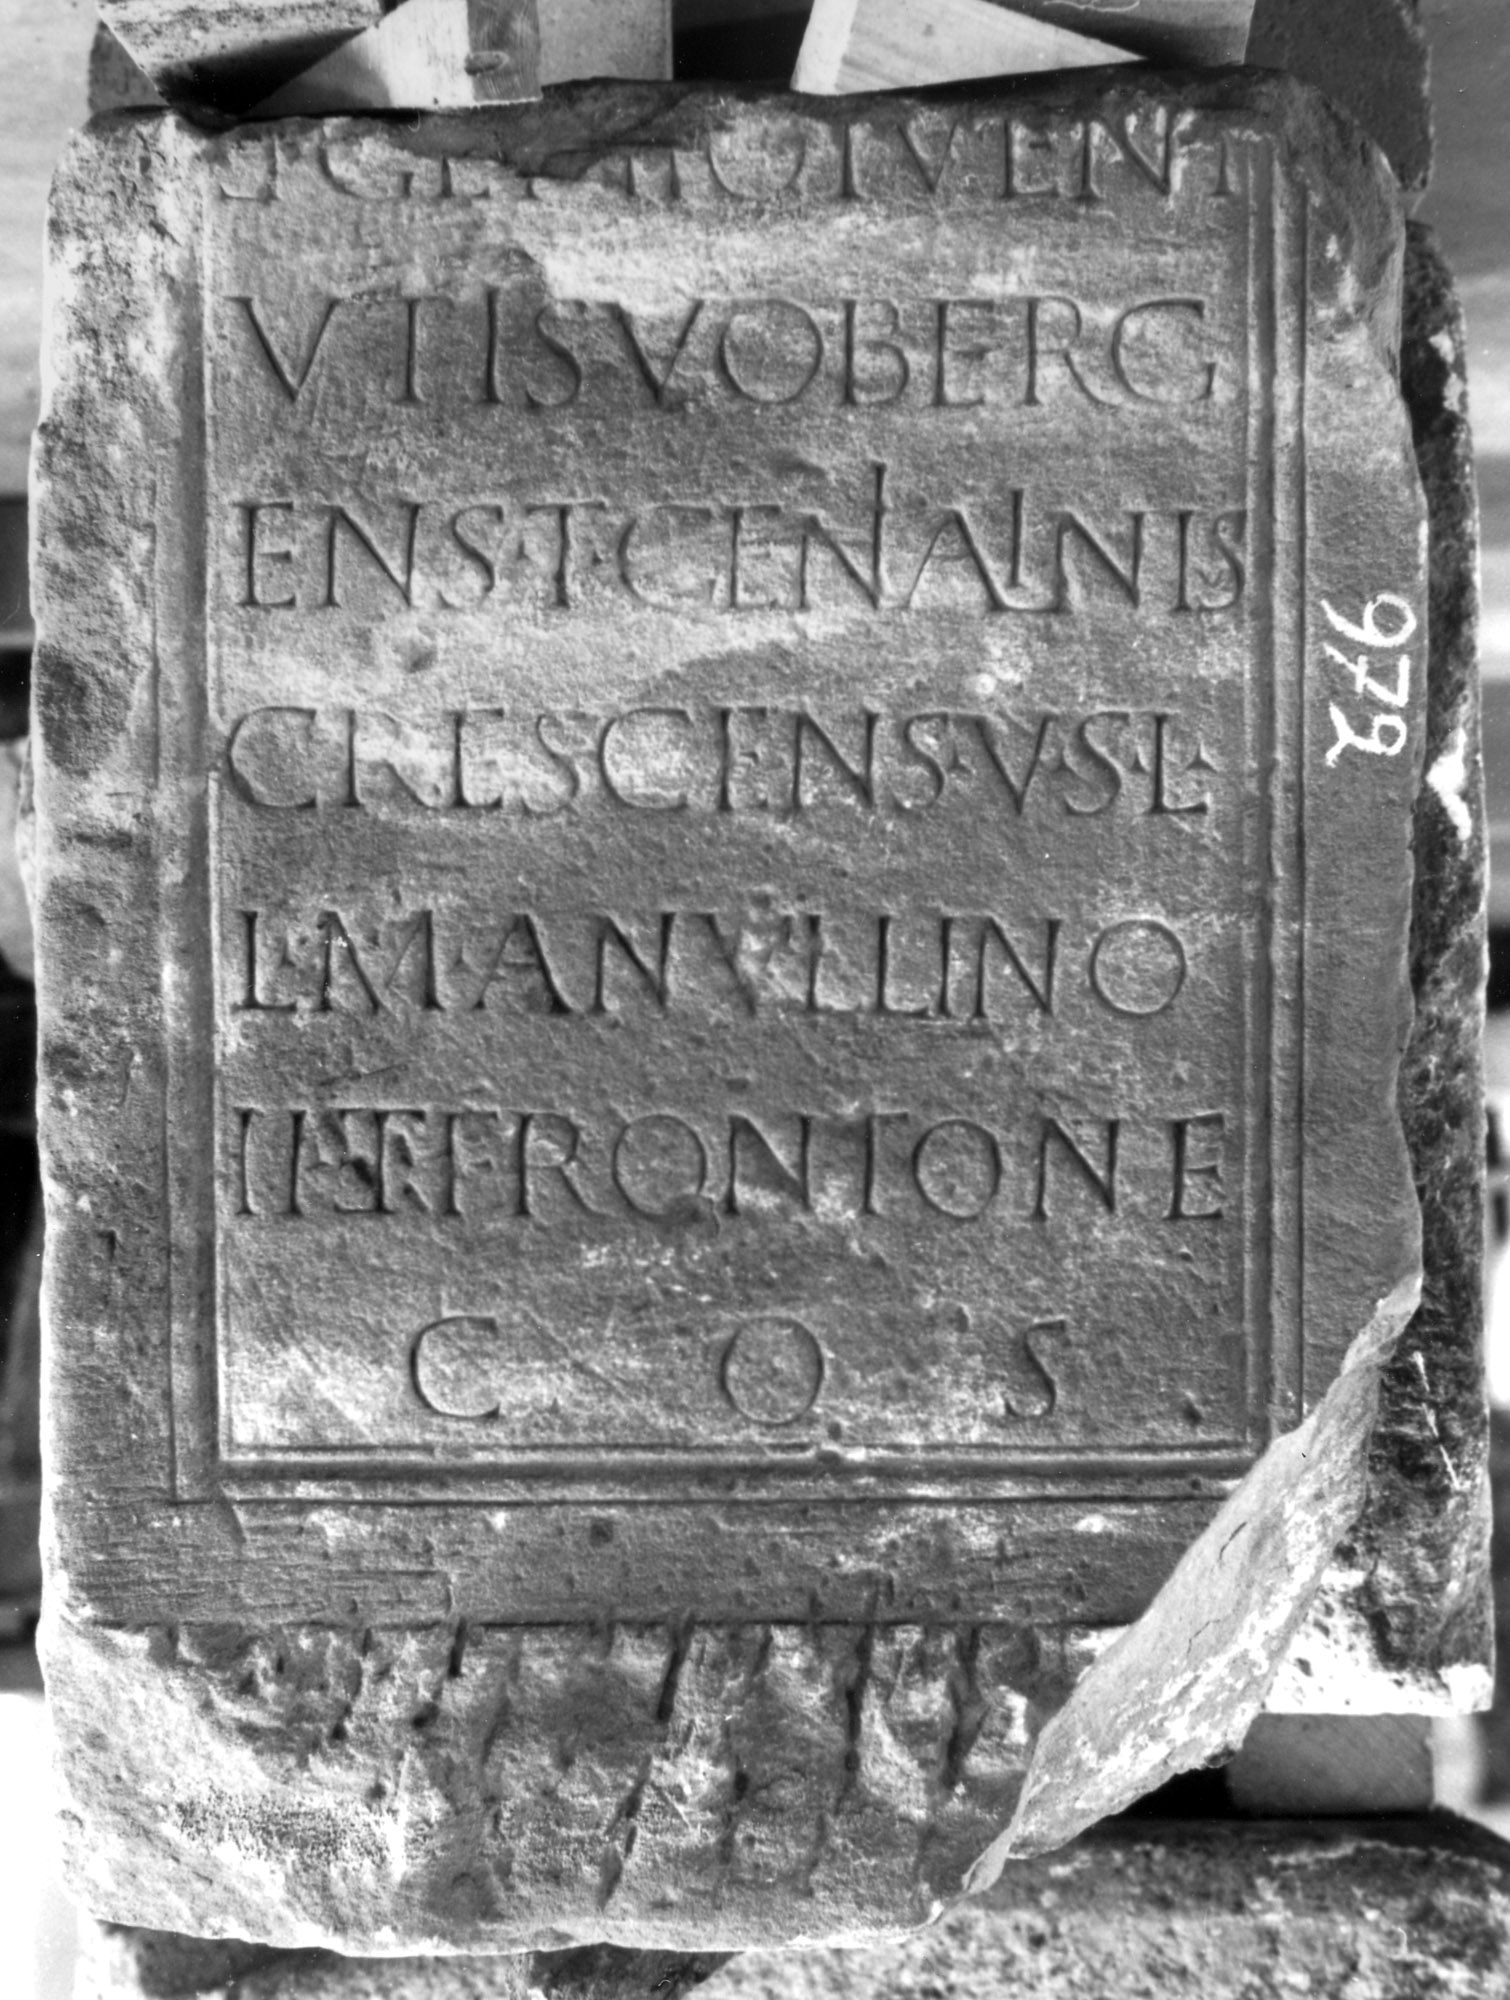 ET GENIO IVENT
VTIS VOBERG
ENS·T·GENIALINIVS
CRESCENS·V·S·L·
L·M·ANVLLINO
II·ET FRONTONE
C O S
972